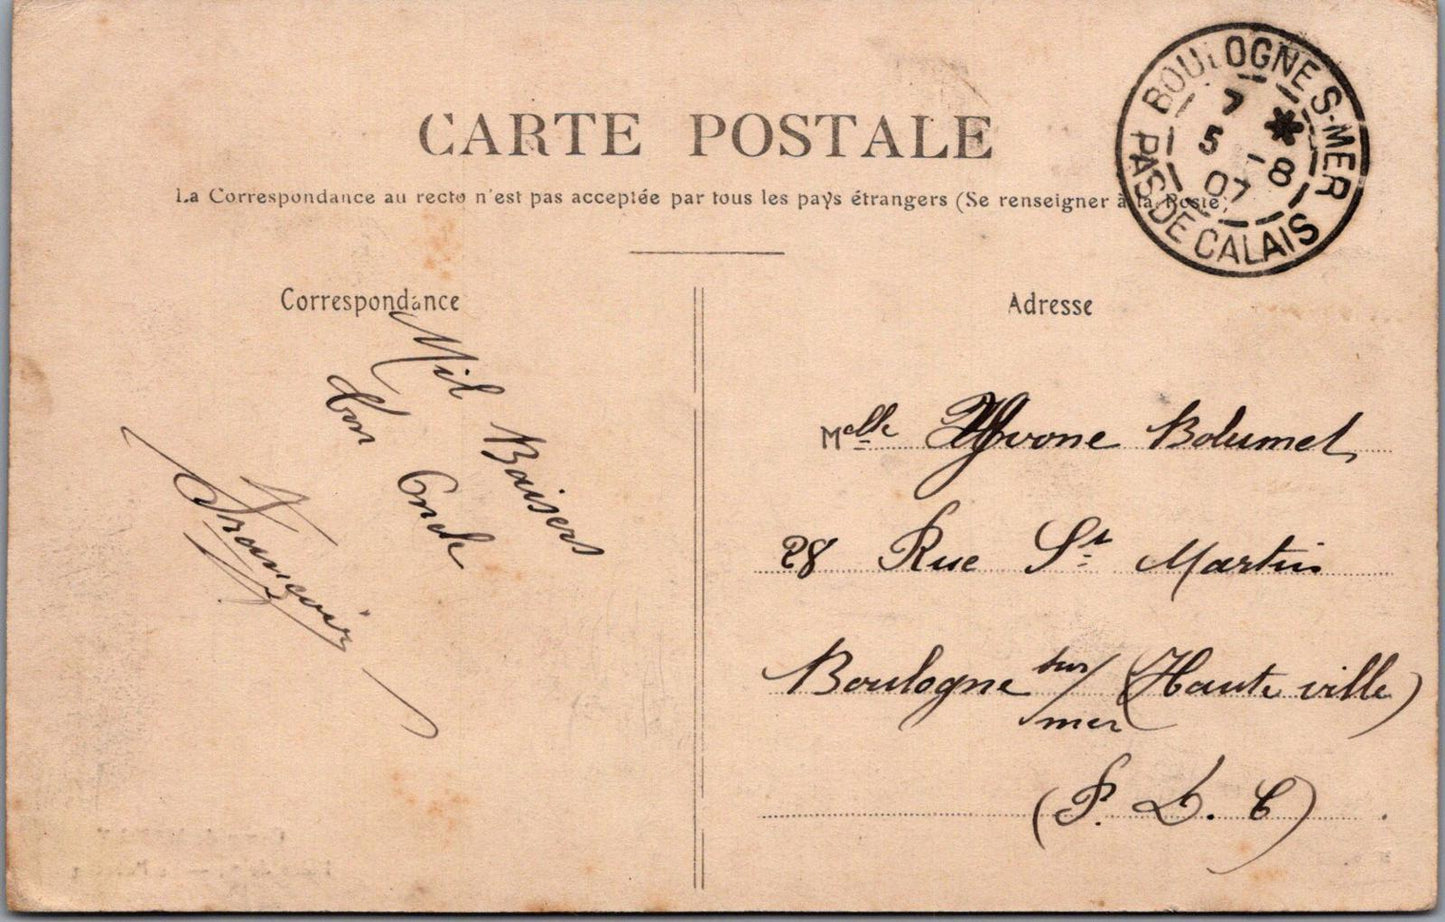 CARTE POSTALE
La Correspondance au recto n'est pas acceptée par tous les pays étrangers (Se renseigner à la Poste)
BOULOGNE S-MER
7 *
5 -8
07
PAS DE CALAIS
Correspondance
Mil Baisers
Ton Oncle
François
Adresse
Melle Yvone Bolumet
28 Rue St Martin
Boulogne sur/mer (Haute ville)
(P. D. C)